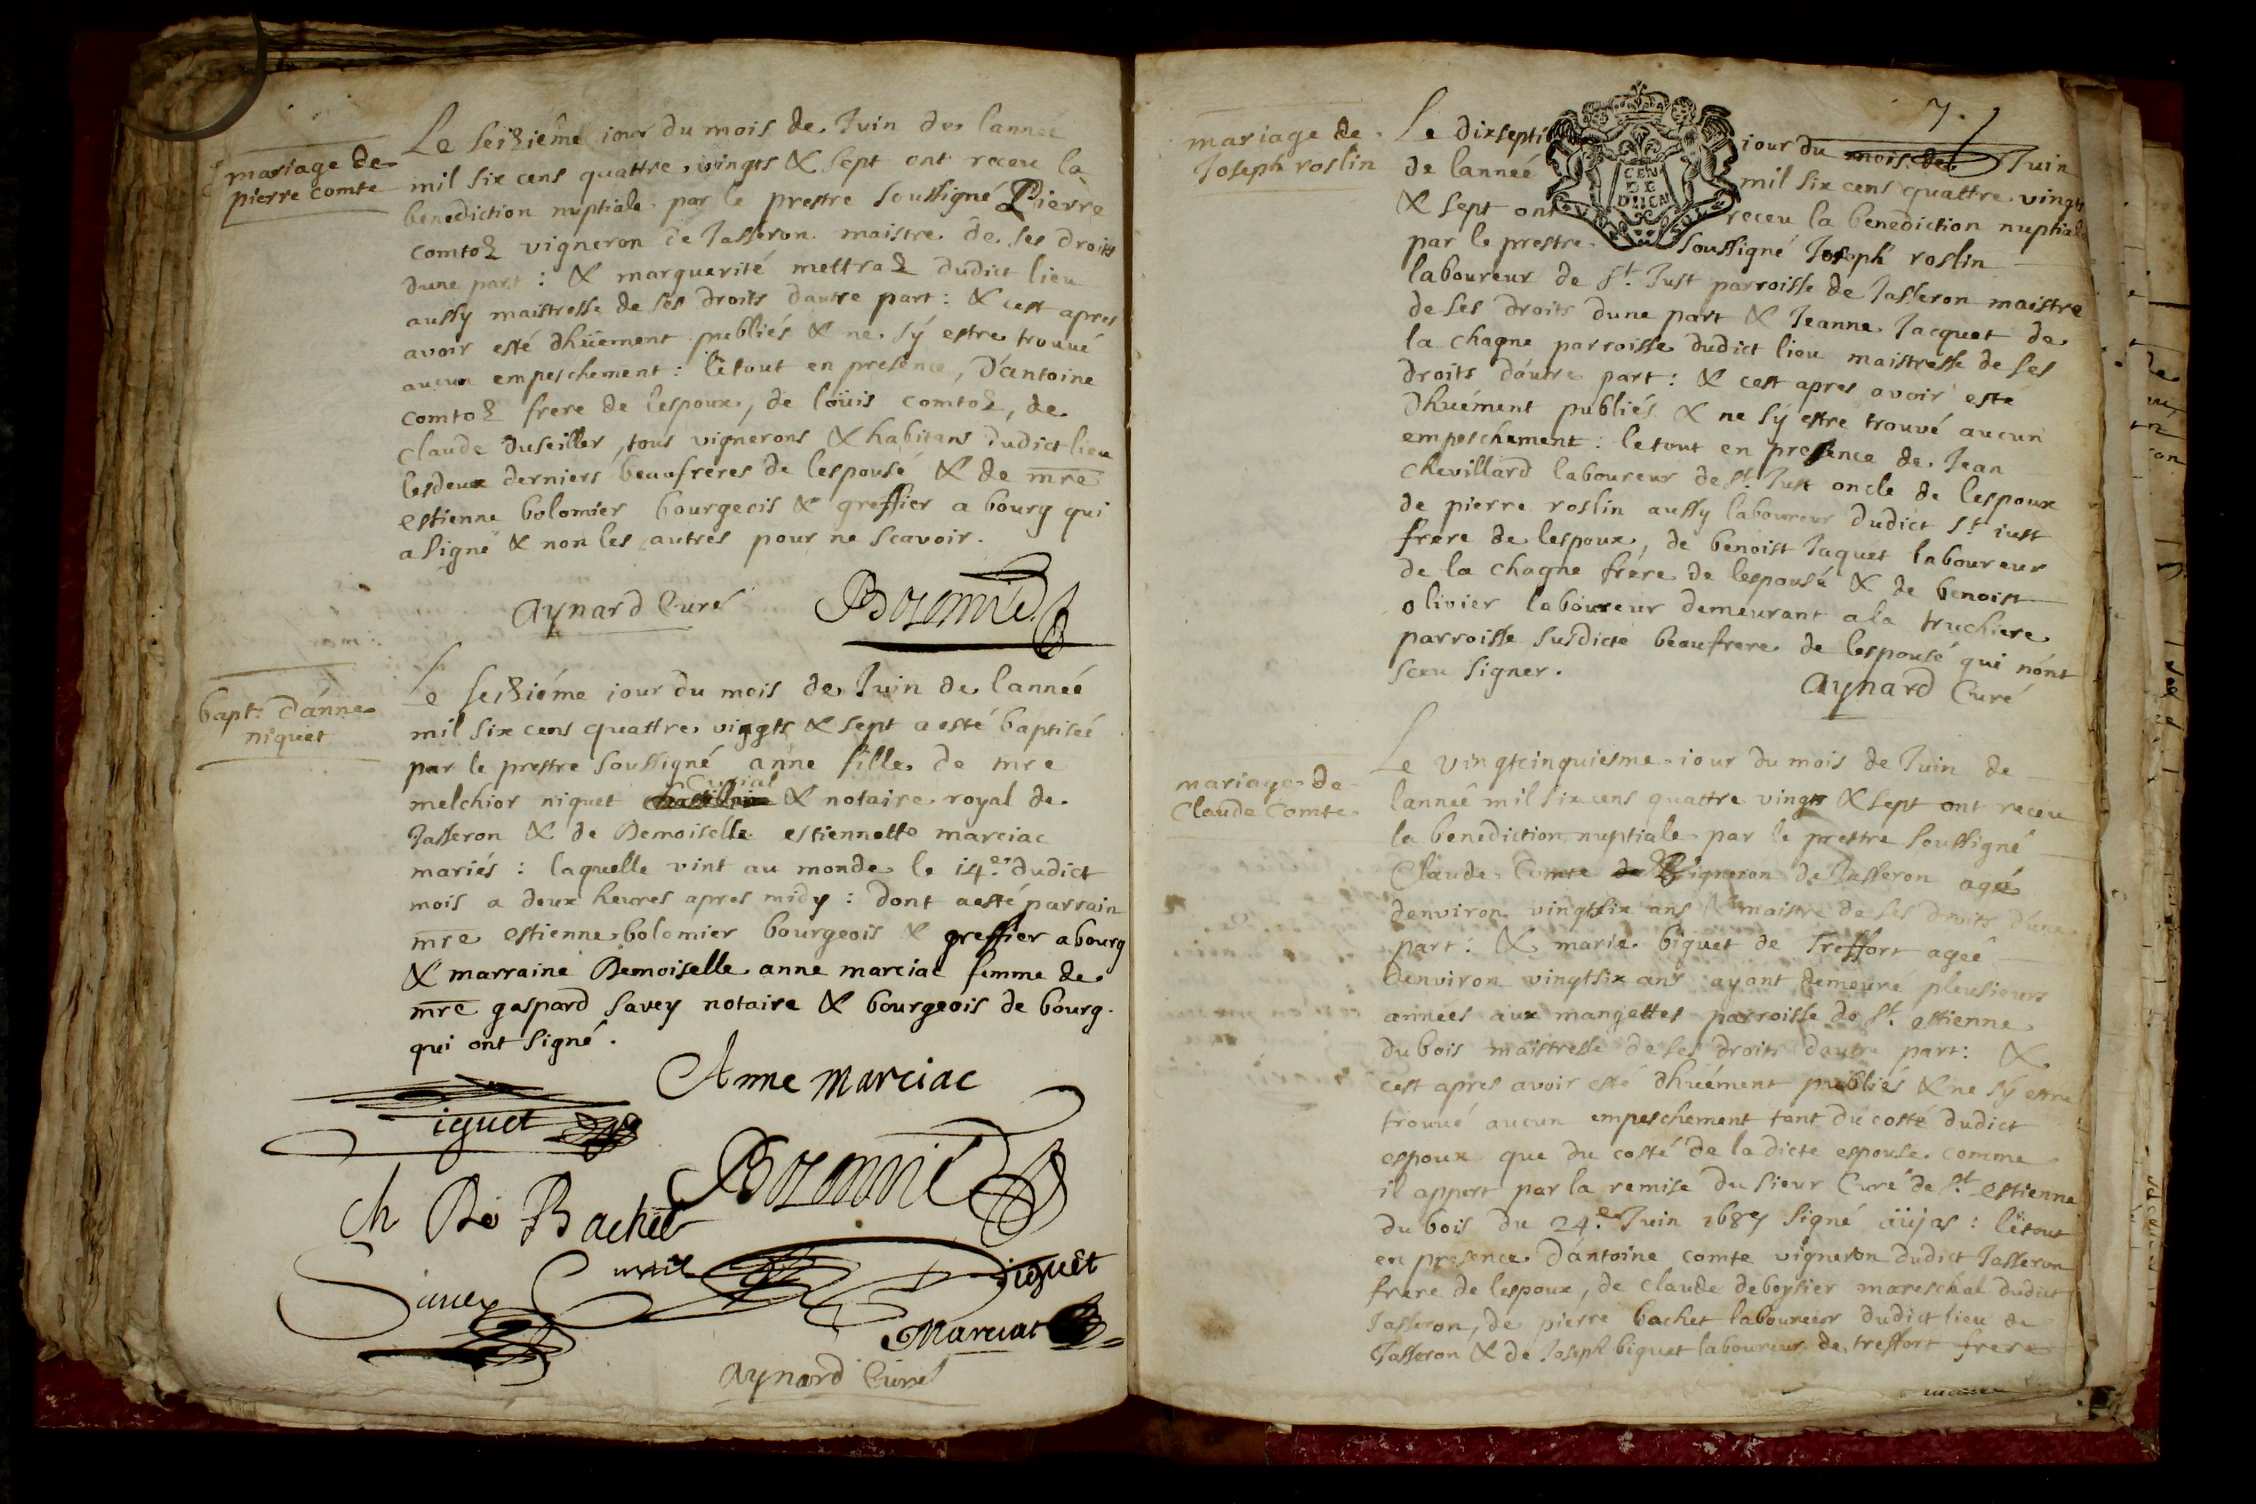 mariage de
pierre comte
Le seiziéme iour du mois de Juin de lannée
mil six cens quattre vingts & sept ont receu la
benediction nuptiale par le prestre soussigné Pierre
comtoz vigneron de Jasseron maistre de ses droits
dune part : & marguerité mettraz dudict lieu
aussy maistresse de ses droits dautre part : & cest apres
avoir esté dhüement publiés & ne sÿ estre trouvé
aucun empeschement : le tout en presence, D'antoine
comtoz frere de lespoux, de loüis comtoz, de
claude duseiller, tous vignerons & habitans dudict lieu
les deux derniers beaufreres de lespousé & de mre
estienne bolomier bourgeois & greffier a bourg qui
a signé & non les autres pour ne scavoir.
aynard Curé
Bolomier
bapt: dánne
niquet
Le seiziéme iour du mois de Juin de lannéé
mil six cens quattre vinggts & sept a esté baptiséé
par le prestre soussigné anne fille de mre
Curial
melchior niquet & notaire royal de
Jasseron & de Demoiselle estiennette marciac
mariés : laquelle vint au monde le 14.e dudict
mois a deux heures apres midy : dont a esté parrain
mre estienne bolomier bourgeois & greffier a bourg
& marraine Demoiselle anne marciac femme de
mre gaspard savey notaire & bourgeois de bourg.
qui ont signé.
Anne Marciac
iquet
Bolomier
ch De Bachet
Savey
niquet
Marciat
aynard Curé
7.
mariage de
Joseph roslin
Le dixsepti iour du mois de Juin
de lanneé mil six cens quattre vingts
& sept ont receu la benediction nuptiale
par le prestre soussigné Joseph roslin
laboureur de St. Just parroisse de Jasseron maistre
de ses droits dune part & Jeanne Jacquet de
la chagne parroisse dudict lieu maistresse de ses
droits dáutre part : & cest apres avoir esté
dhuément publiés & ne sÿ estre trouvé aucun
empeschement : le tout en presence de Jean
chevillard laboureur de St. Just oncle de lespoux
de pierre roslin aussy laboureur dudict St. iust
frere de lespoux, de benoist Jaquet laboureur
de la chagne frére de lespousé & de benoist
olivier laboureur demeurant a la truchiere
parroisse susdicte beaufrere de lespousé qui nónt
sceu signer.
aynard Curé
mariage de
Claude Comte
Le vingtcinquiesme iour du mois de Juin de
lanneé mil six cens quattre vingts & sept ont receu
la benediction nuptiale par le prestre soussigné
Claude Comte de Vigneron de Jasseron agé
denviron vingtsix ans & maistre de ses droits dune
part : & marie biguet de Treffort ageé
denviron vingtsix ans ayant demeuré plusieurs
années aux mangettes parroisse de St. estienne
du bois maistresse de ses droits dautre part : &
cest apres avoir esté dhuément publiés & ne sÿ estre
trouvé aucun empeschement tant du costé dudict
espoux que du costé de la dicte espouse comme
il appert par la remise du sieur Curé de St. estienne
du bois du 24.e Juin 1687 signé aüjas : le tout
en presence D'antoine comte vigneron dudict Jasseron
frere de lespoux, de claude deboysier mareschal dudict
Jasseron, de pierre bachet laboureur dudict lieu de
Jasseron & de Joseph biguet laboureur de treffort frere